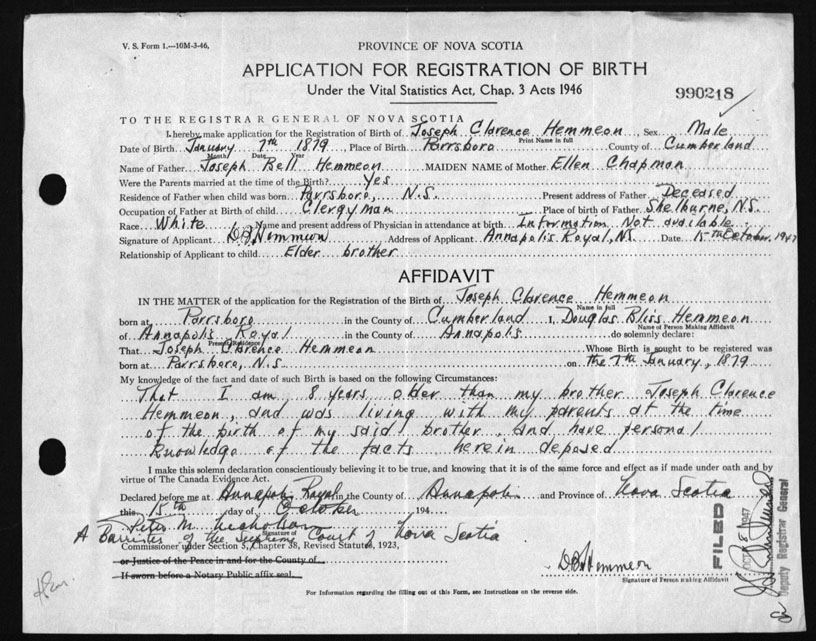 V. S. Form 1.—10M-3-46.
PROVINCE OF NOVA SCOTIA
APPLICATION FOR REGISTRATION OF BIRTH
Under the Vital Statistics Act, Chap. 3 Acts 1946
990218
TO THE REGISTRAR GENERAL OF NOVA SCOTIA
I hereby make application for the Registration of Birth of Joseph Clarence Hemmeon, Sex Male
Print Name in full
Date of Birth January 7th 1879, Place of Birth Parrsboro County of Cumberland
Month Date Year
Name of Father Joseph Bell Hemmeon MAIDEN NAME of Mother Ellen Chapman
Were the Parents married at the time of the Birth? Yes
Residence of Father when child was born Parrsboro, N.S. Present address of Father Deceased
Occupation of Father at Birth of child Clergyman Place of birth of Father Shelburne, N.S.
Race White Name and present address of Physician in attendance at birth Information Not available
Signature of Applicant D.B. Hemmeon Address of Applicant Annapolis Royal, N.S. Date 15th October, 1947
Relationship of Applicant to child Elder brother
AFFIDAVIT
IN THE MATTER of the application for the Registration of the Birth of Joseph Clarence Hemmeon
Name in full
born at Parrsboro in the County of Cumberland I, Douglas Bliss Hemmeon
Name of Person Making Affidavit
of Annapolis Royal in the County of Annapolis do solemnly declare:
Present Residence
That Joseph Clarence Hemmeon Whose Birth is sought to be registered was
born at Parrsboro, N.S. on the 7th January, 1879
My knowledge of the fact and date of such Birth is based on the following Circumstances:
That I am 8 years older than my brother Joseph Clarence
Hemmeon, and was living with my parents at the time
of the birth of my said brother, and have personal
knowledge of the facts herein deposed
I make this solemn declaration conscientiously believing it to be true, and knowing that it is of the same force and effect as if made under oath and by
virtue of The Canada Evidence Act.
Declared before me at Annapolis Royal in the County of Annapolis and Province of Nova Scotia
this 15th day of October 194
Peter M. Nicholson
Signature of
A Barrister of the Supreme Court of Nova Scotia
Commissioner under Section 5, Chapter 38, Revised Statutes, 1923,
or Justice of the Peace in and for the County of
If sworn before a Notary Public affix seal.
D.B. Hemmeon
Signature of Person making Affidavit
FILED
1947
Deputy Registrar General
For Information regarding the filling out of this Form, see Instructions on the reverse side.